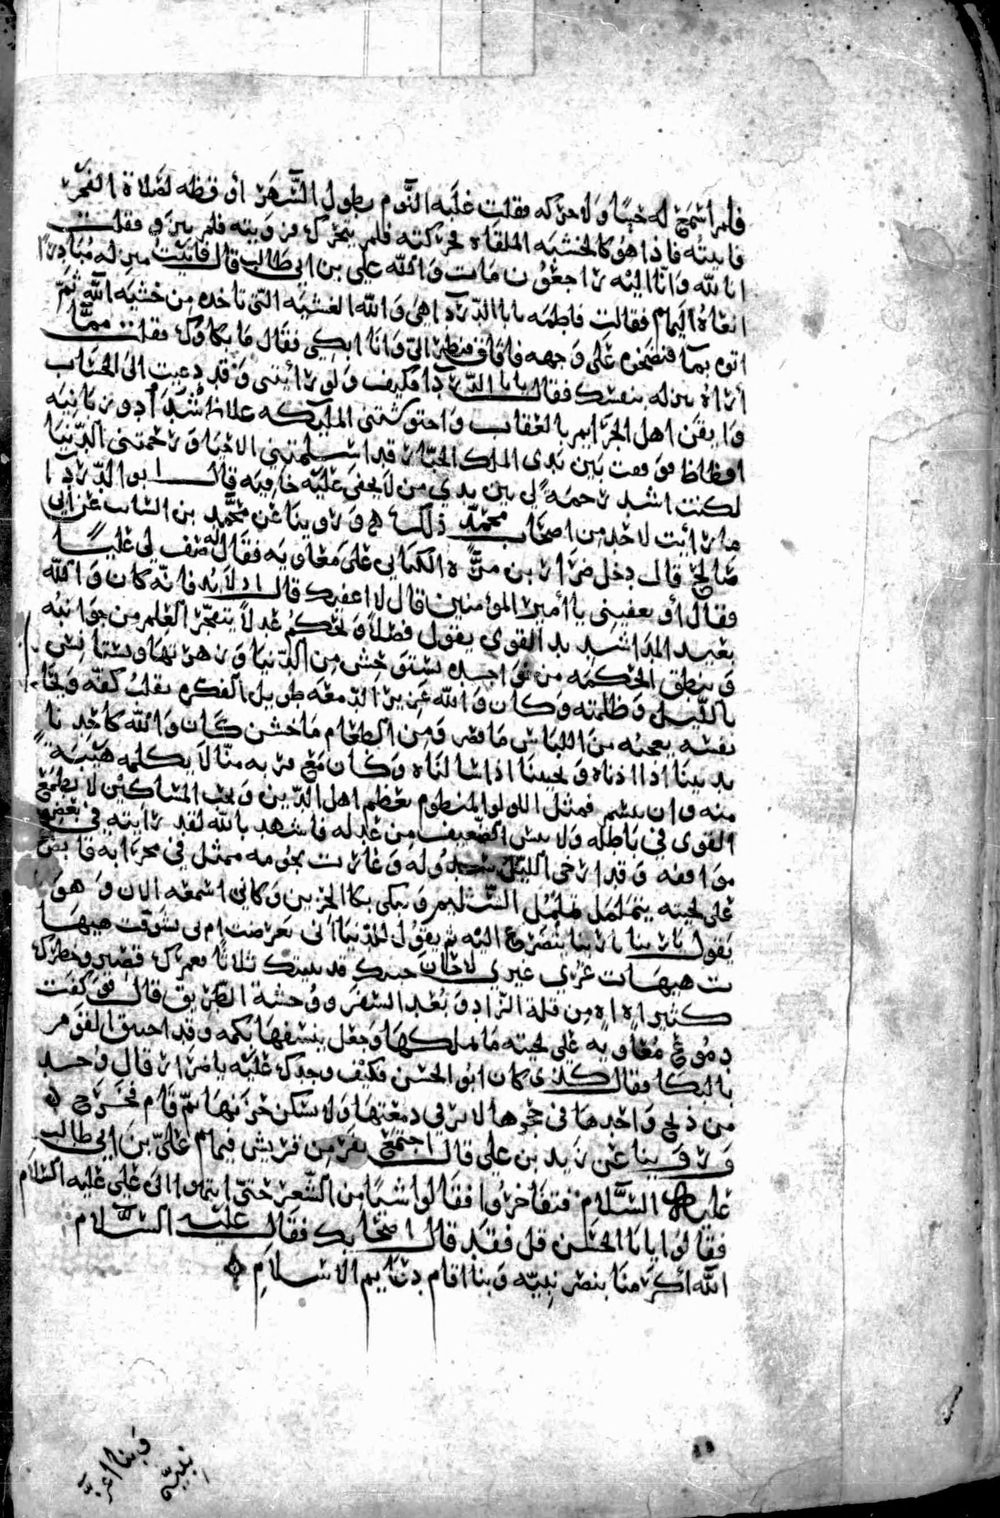 فلم اسمع له حسًا ولا حركه فقلت غلبه النوم بطول السهر اوقظه لصلاة الفجر
فاتيته فاذا هو كالخشبه الملقاه فحركته فلم يتحرك فزويته فلم ينزو فقلت
انا لله وانا اليه راجعون مات والله علي بن ابي طالب قال فاتيت منزله مبادرًا
انعاه اليهم فقالت فاطمه يا با الدردا هي والله الغشيه التي تاخذه من خشيه الله ثم
اتوه بما فنضحوه على وجهه فافاق فنظر الي وانا ابكي فقال ما بكاوك فقلت مما
اراه تنزله بنفسك فقال يا با الدردا فكيف ولو رايتني وقد دعيت الى الحساب
وايقن اهل الجرايم بالعقاب واحتوشتني الملايكه غلاظ شداد وزبانيه
افظاظ فوقفت بين يدى الملك الجبار قد اسلمتني الاحبا ورحمتني الدنيا
لكنت اشد رحمة لي بين يدي من لا يخفى عليه خافيه قال ابو الدردا
ما رايت لاحد من اصحاب محمد ذلك وروينا عن محمد بن السايب عن ابي
صالح قال دخل ضرار بن ضمرة الكناني على معاويه فقال له صف لي عليًا
فقال او تعفيني يا امير المومنين قال لا اعفيك قال اذ لا بد فانه كان والله
بعيد المدا شديد القوى يقول فصلًا ويحكم عدلًا يتفجر العلم من جوانبه
وينطق الحكمه من نواحيه يستوحش من الدنيا وزهرتها ويستانس
بالليل وظلمته وكان والله غزير الدمعه طويل الفكره يقلب كفه ويخاطب
نفسه يعجبه من اللباس ما قصر ومن الطعام ما خشن كان والله كاحدنا
يدنينا اذا اتيناه ويجيبنا اذا سالناه وكان مع قربه منا لا نكلمه هيبة
منه فان تبسم فمثل اللولو المنظوم يعظم اهل الدين ويحب المساكين لا يطمع
القوى في باطله ولا ييس الضعيف من عدله فاشهد بالله لقد رايته في بعض
مواقفه وقد ارخى الليل سدوله وغارت نجومه ممثل في محرابه قابض
على لحيته يتململ تململ السليم ويبكي بكا الحزين وكاني اسمعه الان وهو
يقول يا ربنا يا ربنا يتضرع اليه ثم يقول للدنيا الي تعرضت ام لي تشوقت هيها
ت هيهات غري غيري لا حان حينك قد بتتك ثلاثًا فعمرك قصير وخطرك
كثير اه اه من قلة الزاد وبعد السفر ووحشة الطريق قال فوكفت
دموع معاويه على لحيته ما يملكها وجعل ينشفها بكمه وقد اختنق القوم
بالبكا فقال كذى كان ابو الحسن فكيف وجدك عليه يا ضرار قال وجد
من ذبح واحدها في حجرها لا ترقى دمعتها ولا يسكن حزنها ثم قام فخرج
وروينا عن زيد بن علي قال اجتمع نفر من قريش فيهم علي بن ابي طالب
عليه السلام فتفاخروا فقالوا شيا من الشعر حتى انتهوا الى علي عليه السلام
فقالوا يا با الحسن قل فقد قال اصحابك فقال عليه السلام
الله اكرمنا بنصر نبيه وبنا اقام دعايم الاسلام
وبنا اعز
نبيه